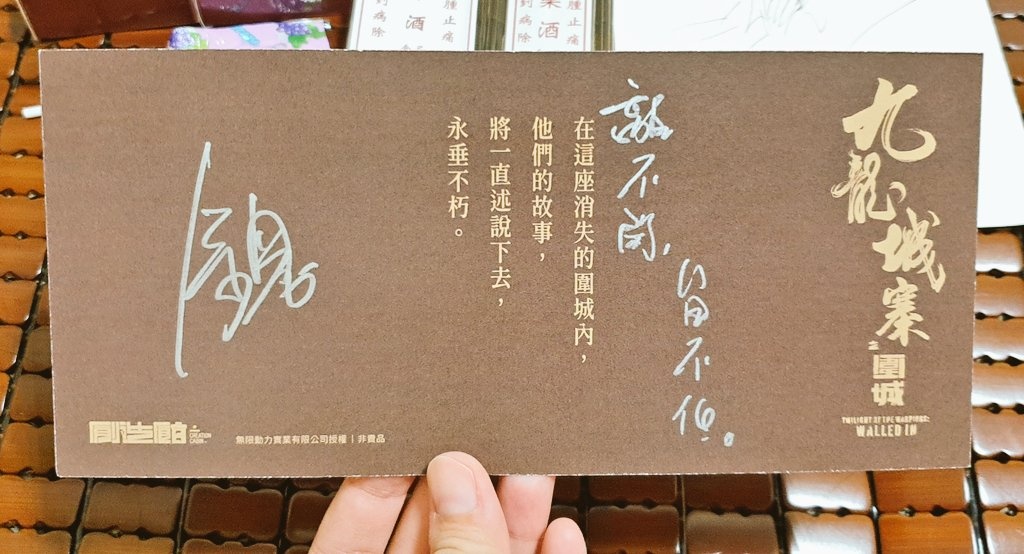 腫止痛
酒
到病除
腫止痛
酒
到病除
九龍城寨
之圍城
TWILIGHT OF THE WARRIORS:
WALLED IN
離不開，
留不低。
在這座消失的圍城內，
他們的故事，
將一直述說下去，
永垂不朽。
創造館
CREATION
CABIN
無限動力實業有限公司授權｜非賣品